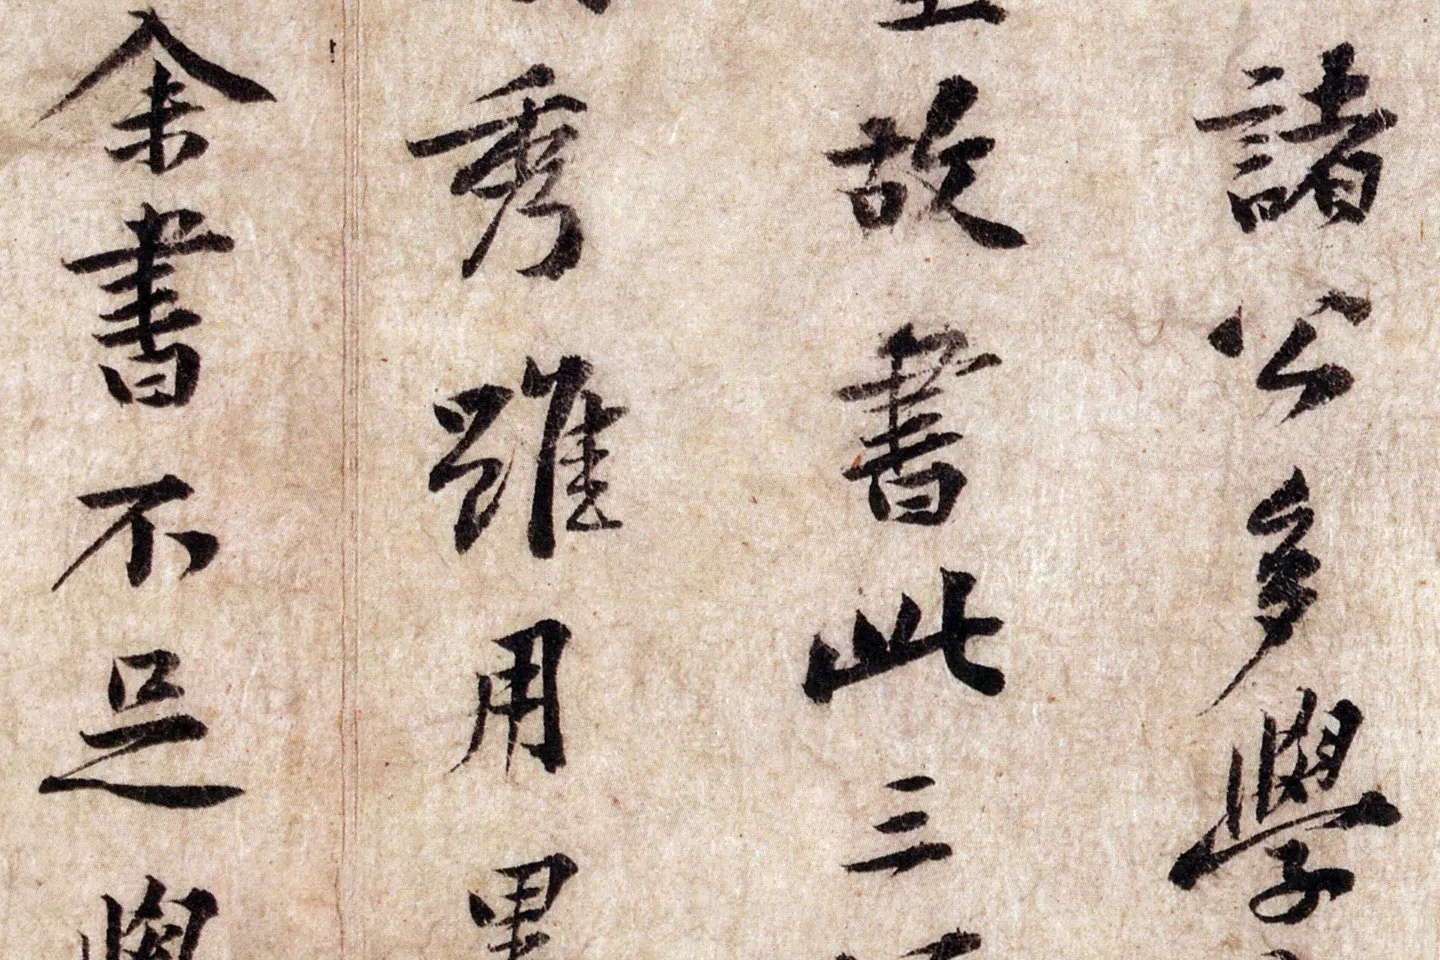 諸公多學
故書此三
秀雖用
余書不足學